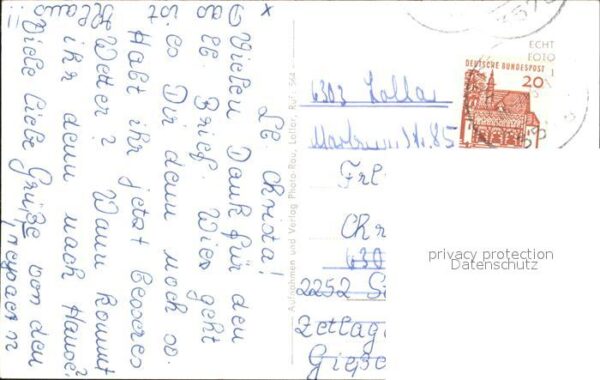 x
LC Christa!
Vielen Dank für den
das lb. Brief. Wie geht
ist es Dir denn noch so.
Habt ihr jetzt besseres
Wetter? Wann kommt
ihr denn nach Hause?
Klaus
!! Viele liebe Grüße von den
Aufnahmen und Verlag Photo-Bau, Lollar, R. 564
6303 Lollar
Str. 85
Frl
Chr
630
2252 St
Zeltlag
Gieße
3570
ECHT
FOTO
DEUTSCHE BUNDESPOST
20
privacy protection
Datenschutz